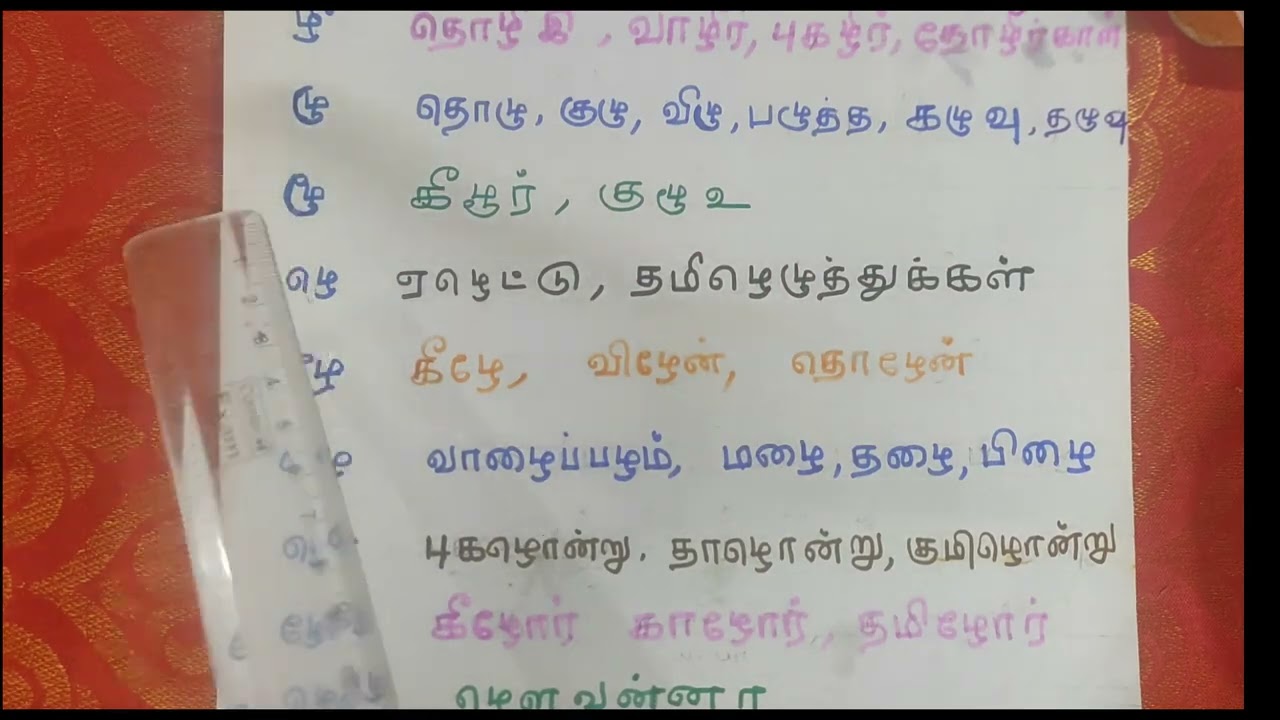 ழீ வாழீர், புகழீர், தோழீர்காள்
ழு தொழு, குழு, விழு, பழுத்த, கழுவு, தழுவு
ழூ கீழூர், குழூஉ
ழெ ஏழெட்டு, தமிழெழுத்துக்கள்
ழே கீழே, விழேன், தொழேன்
ழை வாழைப்பழம், மழை, தழை, பிழை
ழொ புகழொன்று. தாழொன்று, குமிழொன்று
ழோ கீழோர் காழோர், தமிழோர்